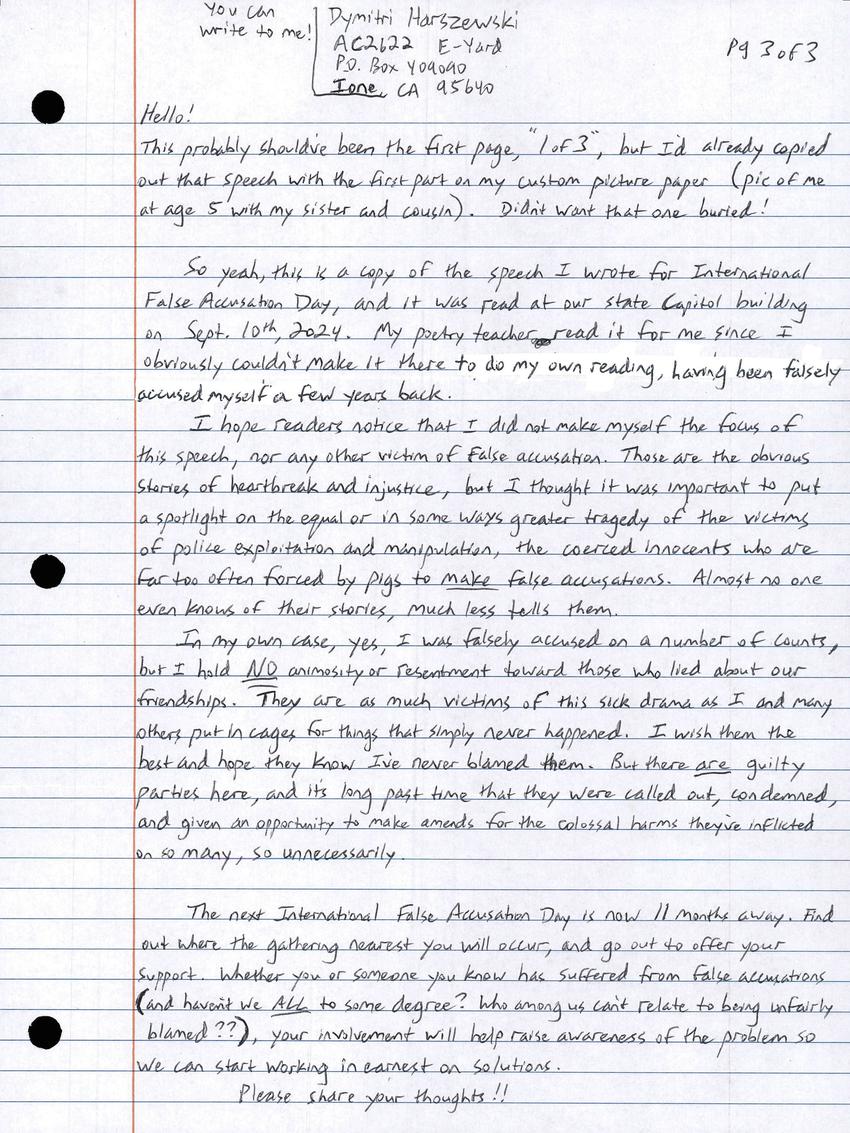 You can
write to me!
Dymitri Harszewski
AC2622 E-Yard
P.O. Box 409090
Ione, CA 95640
Pg 3 of 3
Hello!
This probably should've been the first page, "1 of 3", but I'd already copied
out that speech with the first part on my custom picture paper (pic of me
at age 5 with my sister and cousin). Didn't want that one buried!
So yeah, this is a copy of the speech I wrote for International
False Accusation Day, and it was read at our state Capitol building
on Sept. 10th, 2024. My poetry teacher read it for me since I
obviously couldn't make it there to do my own reading, having been falsely
accused myself a few years back.
I hope readers notice that I did not make myself the focus of
this speech, nor any other victim of false accusation. Those are the obvious
stories of heartbreak and injustice, but I thought it was important to put
a spotlight on the equal or in some ways greater tragedy of the victims
of police exploitation and manipulation, the coerced innocents who are
far too often forced by pigs to make false accusations. Almost no one
even knows of their stories, much less tells them.
In my own case, yes, I was falsely accused on a number of counts,
but I hold NO animosity or resentment toward those who lied about our
friendships. They are as much victims of this sick drama as I and many
others put in cages for things that simply never happened. I wish them the
best and hope they know I've never blamed them. But there are guilty
parties here, and it's long past time that they were called out, condemned,
and given an opportunity to make amends for the colossal harms they've inflicted
on so many, so unnecessarily.
The next International False Accusation Day is now 11 months away. Find
out where the gathering nearest you will occur, and go out to offer your
support. Whether you or someone you know has suffered from false accusations
(and haven't we ALL to some degree? Who among us can't relate to being unfairly
blamed??), your involvement will help raise awareness of the problem so
we can start working in earnest on solutions.
Please share your thoughts!!